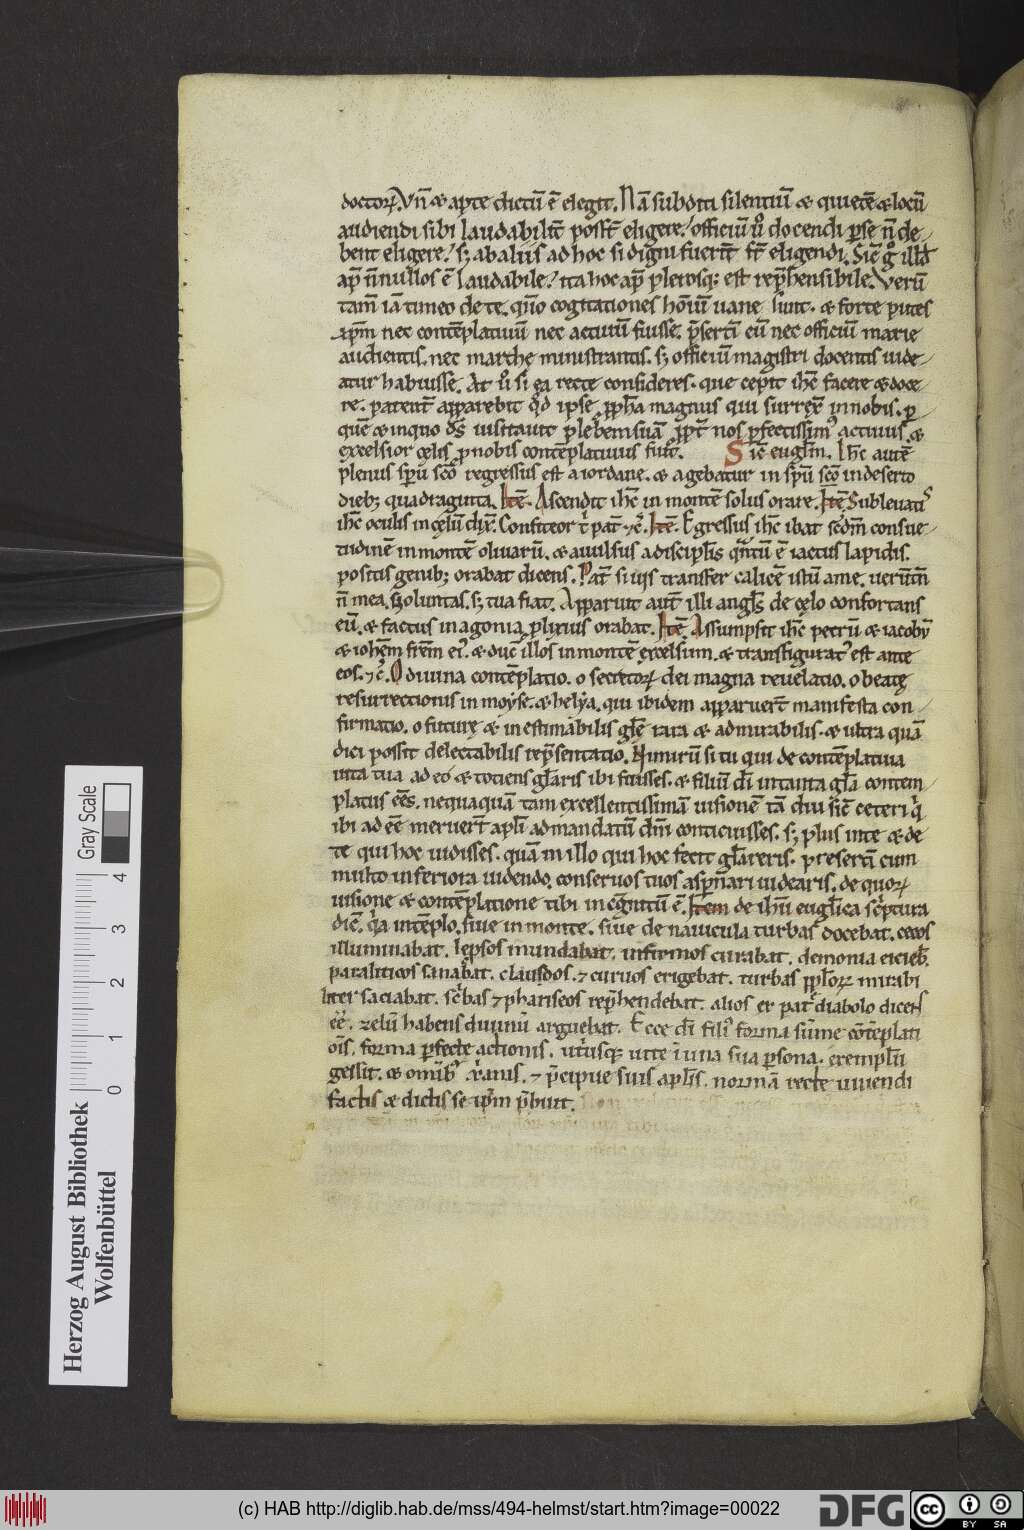 doctoꝝ. Vn̄ & apte dictū ē elegit. Nā subdita silentiū & quietē & locū
audiendi sibi laudabilit̄ poss̄t eligere. officiū ū docendi ꝑ se n̄ de-
bent eligere. sꝫ ab aliis ad hoc si digni fuerīt s̄t eligendi. Sic̄ g̊ illđ
ap̄ n̄nullos ē laudabile. ita hoc ap̄ plerosqꝫ est rep̄hensibile. Verū
tam̄ iā timeo de te. qm̄o cogitationes hōiū uane sunt. & forte putes
ip̄m nec contēplatiuū nec actiuū fuisse. p̄sertī cū nec officiū marie
audientis. nec marthę ministrantis. sꝫ officiū magistri docentis uide-
atur habuisse. At ū si ea recte consideres. que cepit ihc̄ facere & doce-
re. patent̄ apparebit qđ ipse ꝓpha magnus qui surrex̄ in nobis. ꝑ
quē & in quo ds̄ uisitauit plebem suā ꝓpt̄ nos ꝑfectissim᷒ actiuus. &
excelsior cęlis ꝓ nobis contēplatiuus fuit̄. Sic̄ euglm̄. Ihc̄ autē
plenus sp̄u scō regressus est a iordane. & agebatur in sp̄u scō in deserto
diebꝫ quadraginta. Itē. Ascendit ihc̄ in montē solus orare. Itē. Subleuatis
ihc̄ oculis in cęlū dix̄. Confiteor t̄ pat̄ ⁊c̄. Itē. Egressus ihc̄ ibat scdm̄ consue-
tudinē in montē oliuarū. & auulsus a discipl̄is qn̄tū ē iactus lapidis.
positis genibꝫ orabat dicens. Pat̄ si uis transfer calicē istū a me. uerūtn̄
n̄ mea uoluntas. sꝫ tua fiat. Apparuit aut̄ illi angl̄s de cęlo confortans
eū. & factus in agonia ꝓlixius orabat. Itē. Assumpsit ihc̄ petrū & iacobū
& ioh̄em fr̄em ei᷒. & duc̄ illos in montē excelsum. & transfigurat᷒ est ante
eos. ⁊c̄. O diuina contēplatio. o secretoꝝ dei magna reuelatio. o beatę
resurrectionis in moyse. & helya. qui ibidem apparuer̄t manifesta con-
firmatio. o futurę & inestimabilis glę̄ rara & admirabilis. & ultra quā
dici possit delectabilis rep̄sentatio. Nimirū si tu qui de contēplatiua
uita tua adeo & totiens gl̄aris ibi fuisses. & filiū dī in tanta gl̄a contem-
platus ēēs. nequaquā tam excellentissimā uisionē tā diu sic̄ ceteri q̄
ibi adēē meruer̄t apl̄i ad mandatū dn̄i conticuisses. sꝫ plus in te & de
te qui hoc uidisses. quā in illo qui hoc fecit gl̄areris. preserti cum
multo inferiora uidendo. conseruos tuos aspn̄ari uidearis. de quoꝝ
uisione & contēplatione tibi incognitū ē. Item de ihū euglica sc̄ptura
dic̄. q̄a in tēplo. siue in monte. siue de nauicula turbas docebat. cecos
illuminabat. lep̄sos mundabat. infirmos curabat. demonia eicieb̄.
paraliticos sanabat. claudos. ⁊ curuos erigebat. turbas ꝓploꝝ mirabi
liter saciabat. sc̄bas ⁊ phariseos rep̄hendebat. alios ex pat̄ diabolo dicens
ēē. zelū habens diuinū arguebat. Ecce dī fili᷒ forma sum̄e cōtēplati
oīs. forma ꝑfecte actionis. ut̄usqꝫ uite ī una sua ꝑsona. exemplū
gessit. & omib᷒ xānis. ⁊ p̄cipue suis apl̄is. normā recte uiuendi
factis & dictis se ip̄m p̄buit.
Herzog August Bibliothek
Wolfenbüttel
Gray Scale
0 1 2 3 4
(c) HAB http://diglib.hab.de/mss/494-helmst/start.htm?image=00022
DFG
cc BY SA